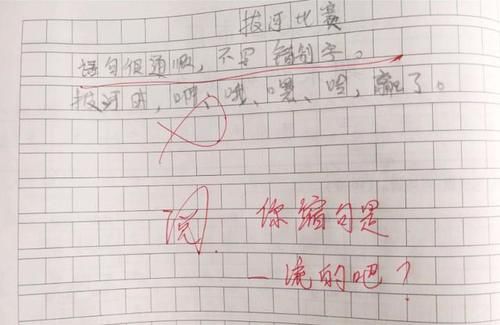 拔河比赛
语句但通顺，不写错别字。
拔河时，嘿、哦、嘿、哈，赢了。
阅 你缩句是
一流的吧？